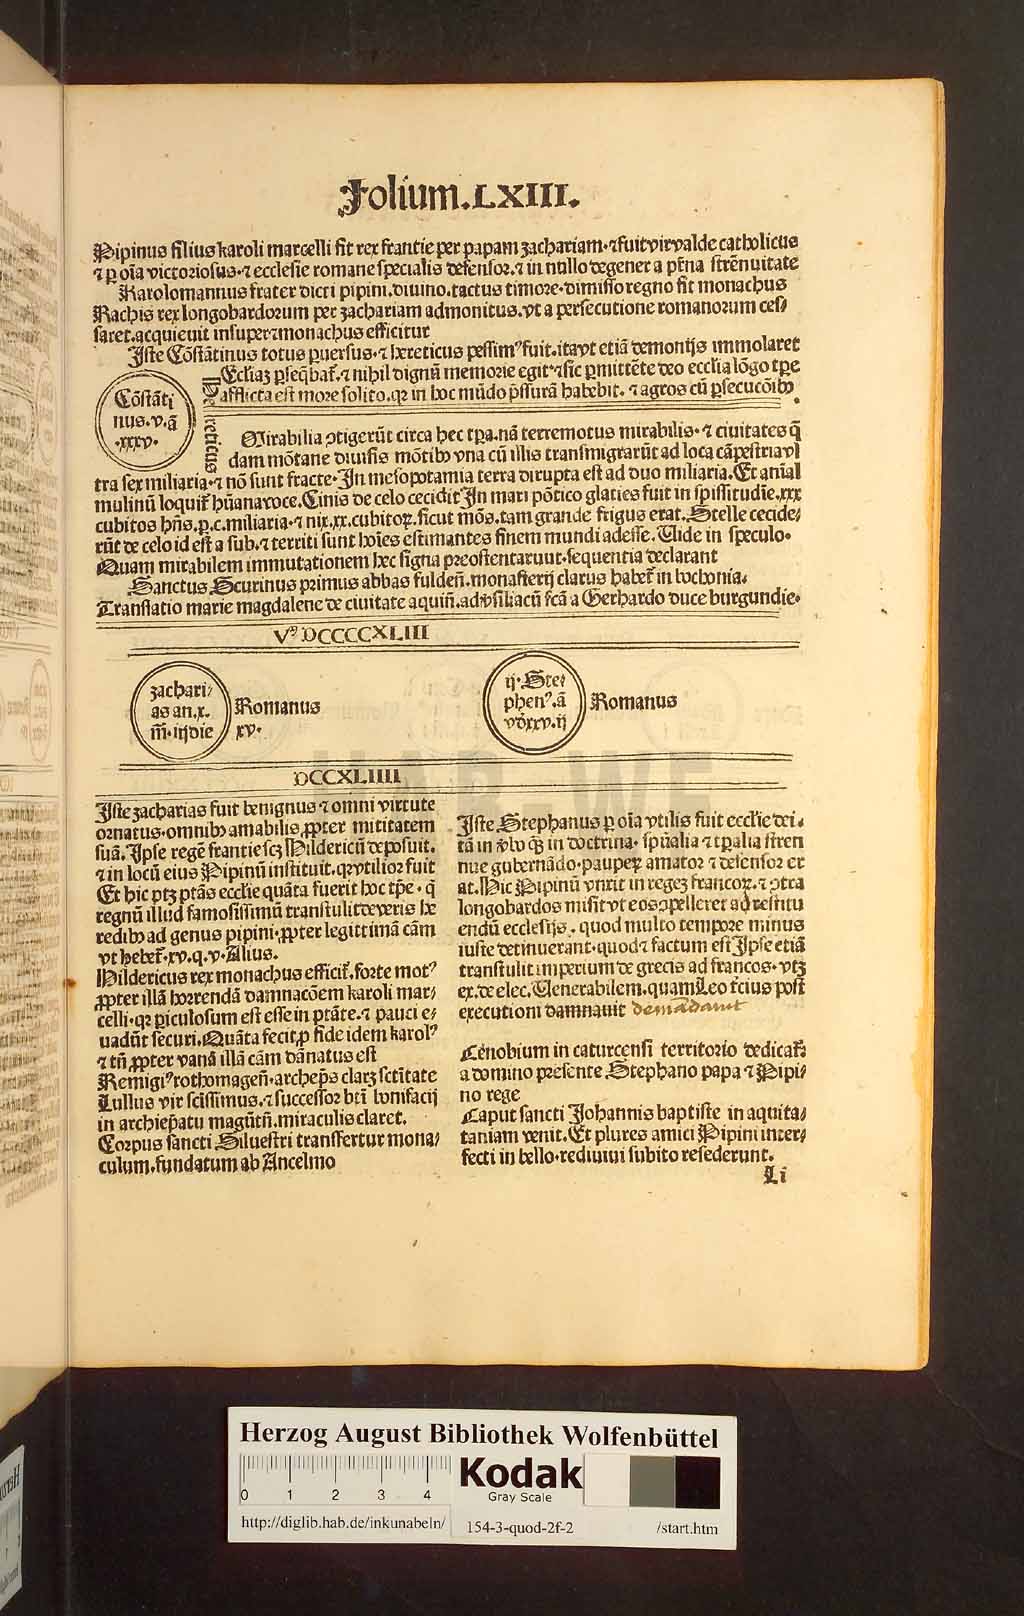 Folium.LXIII.
Pipinus filius karoli marcelli fit rex frantie per papam zachariam.⁊ fuit vir valde catholicus
⁊ ꝑ oĩa victoriosus.⁊ ecclesie romane specialis defensor.⁊ in nullo degener a pr̃na strẽnuitate
Karolomannus frater dicti pipini.diuino.tactus timore.dimisso regno fit monachus
Rachis rex longobardorum per zachariam admonitus.vt a persecutione romanorum ces⸗
saret.acquieuit insuper ⁊ monachus efficitur
Iste Cõstãtinus totus ꝑuersus.⁊ hereticus pessimꝰ fuit.ita vt etiã demonijs immolaret
Eccliaz ꝑseq̃bat̃.⁊ nihil dignũ memorie egit.⁊ sic ꝑmittẽte deo ecclia lõgo tꝑe
afflicta est more solito.qꝛ in hoc mũdo p̃ssurã habebit.⁊ agros cũ ꝑsecucõibꝰ
Cõstãti
nus.v.ã
.xxxv.
Hereticus
Mirabilia ꝯtigerũt circa hec tꝑa.nã terremotus mirabilis.⁊ ciuitates q̃
dam mõtane diuisis mõtibꝰ vna cũ illis transmigrarũt ad loca cãpestria vl
tra sex miliaria.⁊ nõ sunt fracte.In mesopotamia terra dirupta est ad duo miliaria.Et anĩal
mulinũ loquit̃ hũana voce.Cinis de celo cecidit In mari põtico glaties fuit in spissitudĩe.xxx
cubitos hñs.ꝑ.c.miliaria.⁊ nix.xx.cubitoꝝ.sicut mõs.tam grande frigus erat.Stelle cecide⸗
rũt de celo id est a sub.⁊ territi sunt hoĩes estimantes finem mundi adesse.Vide in speculo.
Quam mirabilem immutationem hec signa preostentaruut.sequentia declarant
Sanctus Scurinus primus abbas fuldeñ.monasterij clarus habet̃ in bochonia.
Translatio marie magdalene de ciuitate aquiñ.ad v̓siliacũ fc̃a a Gerhardo duce burgundie.
Vꝰ DCCCCXLIII
zachari⸗
as an.x.
m̃.iij die
Romanus
xv.
ij.Ste⸗
phenꝰ.ã
v d̓ xxv.ij
Romanus
DCCXLIIII
Iste zacharias fuit benignus ⁊ omni virtute
ornatus.omnibꝰ amabilis ꝓpter mititatem
suã.Ipse regẽ frantie scz Hildericũ deposuit.
⁊ in locũ eius Pipinũ instituit.qꝛ vtilior fuit
Et hic ptz ptãs ecclie quãta fuerit hoc tꝑe.q̃
regnũ illud famosissimũ transtulit de veris he
redibꝰ ad genus pipini.ꝓpter legittimã cãm
vt hebet̃.xv.q.v.Alius.
Hildericus rex monachus efficit̃.forte motꝰ
ꝓpter illã horrendã damnacõem karoli mar⸗
celli.qꝛ ꝑiculosum est esse in ptãte.⁊ pauci e⸗
uadũt securi.Quãta fecit ꝓ fide idem karolꝰ
⁊ tñ ꝓpter vanã illã cãm dãnatus est
Remigiꝰ rothomageñ.archep̃s clarz sctĩtate
Lullus vir scĩssimus.⁊ successor btĩ bonifacij
in archiep̃atu magũtñ.miraculis claret.
Corpus sancti Siluestri transfertur mona⸗
culum.fundatum ab Ancelmo
Iste Stephanus ꝑ oĩa vtilis fuit ecclie dei.
tã in v̓bo qꝫ in doctrina.spũalia ⁊ tꝑalia stren
nue gubernãdo.pauperꝝ amator ⁊ defensor er
at.Hic Pipinũ vnxit in regez francoꝝ.⁊ ꝯtra
longobardos misit vt eos ꝯpelleret ad restitu
endũ ecclesijs.quod multo tempore minus
iuste detinuerant.quod ⁊ factum est Ipse etiã
transtulit imperium de grecis ad francos.vtz
ex.de elec.Venerabilem.quam Leo tercius post
executioni damnauit demãdauit
Cenobium in caturcensi territorio dedicat̃
a domino presente Stephano papa ⁊ Pipi⸗
no rege
Caput sancti Johannis baptiste in aquita⸗
taniam venit.Et plures amici Pipini inter⸗
fecti in bello.rediuiui subito resederunt.
Li
HAB-WF
Herzog August Bibliothek Wolfenbüttel
0 1 2 3 4
Kodak
Gray Scale
http://diglib.hab.de/inkunabeln/ 154-3-quod-2f-2 /start.htm